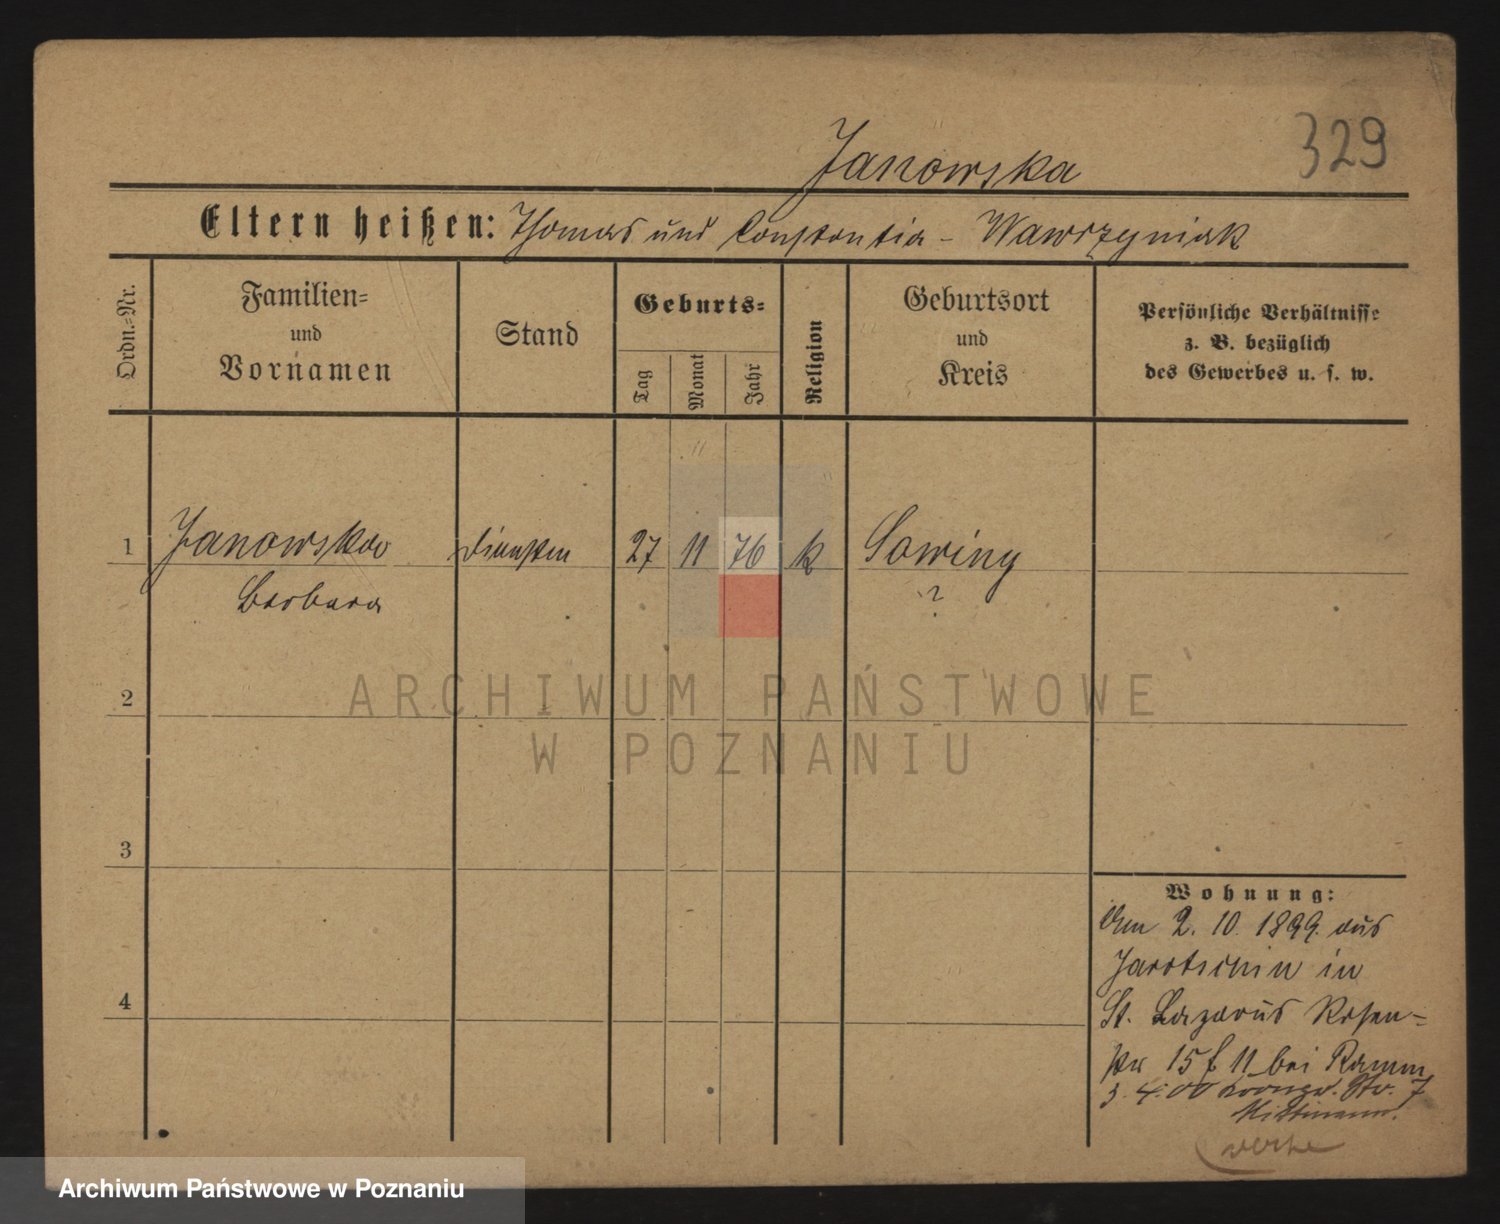 329
Janowska
Eltern heißen: Thomas und Constantia - Wawrzyniak
Ordn.-Nr.
Familien- und Vornamen
Stand
Geburts-
Tag
Monat
Jahr
Religion
Geburtsort und Kreis
Persönliche Verhältnisse
z. B. bezüglich
des Gewerbes u. s. w.
1 Janowska 27 11 76 k Sowiny
Barbara ?
2
ARCHIWUM PAŃSTWOWE
W POZNANIU
3
4
Wohnung:
Am 2. 10. 1899. aus
Jarotschin in
St. Lazarus Rosen-
str 15 f 11 bei Ramm
3. 4. 00 Str. 7
Archiwum Państwowe w Poznaniu